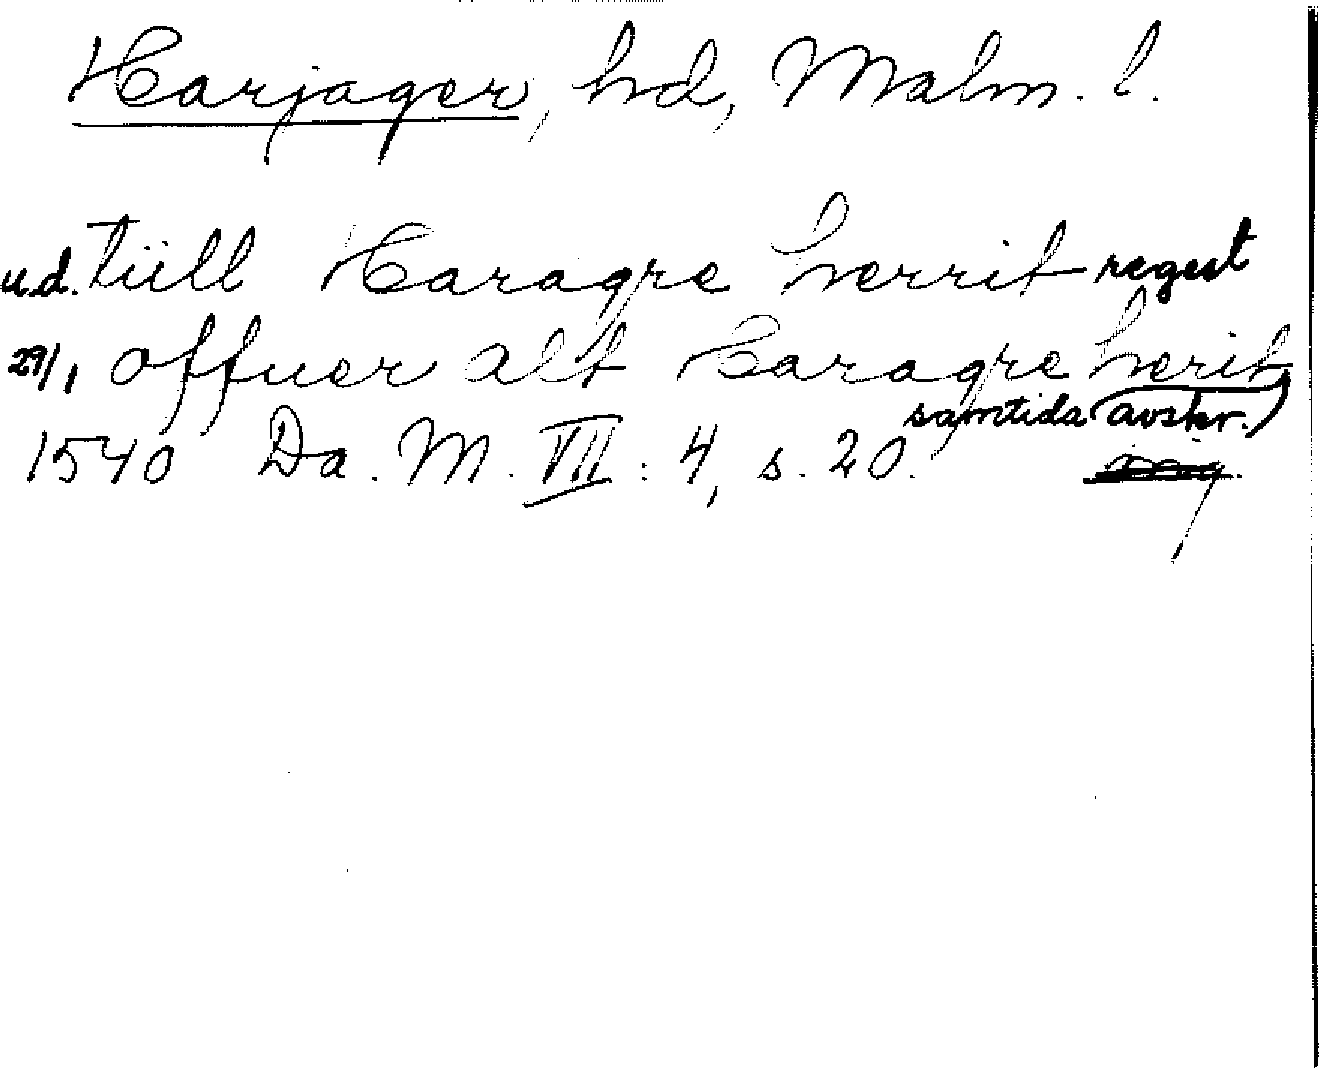 Harjager, hd, Malm. l.
u.d. tüll Haragre herrit regest
29/1 offuer alt haragre herit
samtida avskr.)
1540 Da. M. III: 4, s. 20.